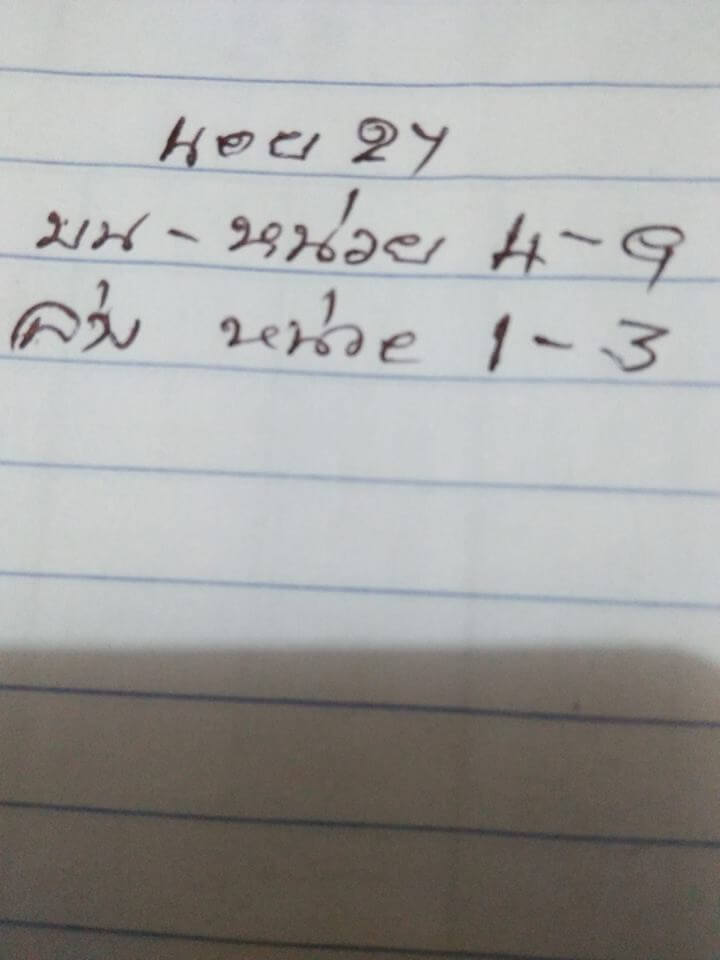 นอย 24
บน - หน่วย 4 - 9
ล่าง หน่วย 1 - 3